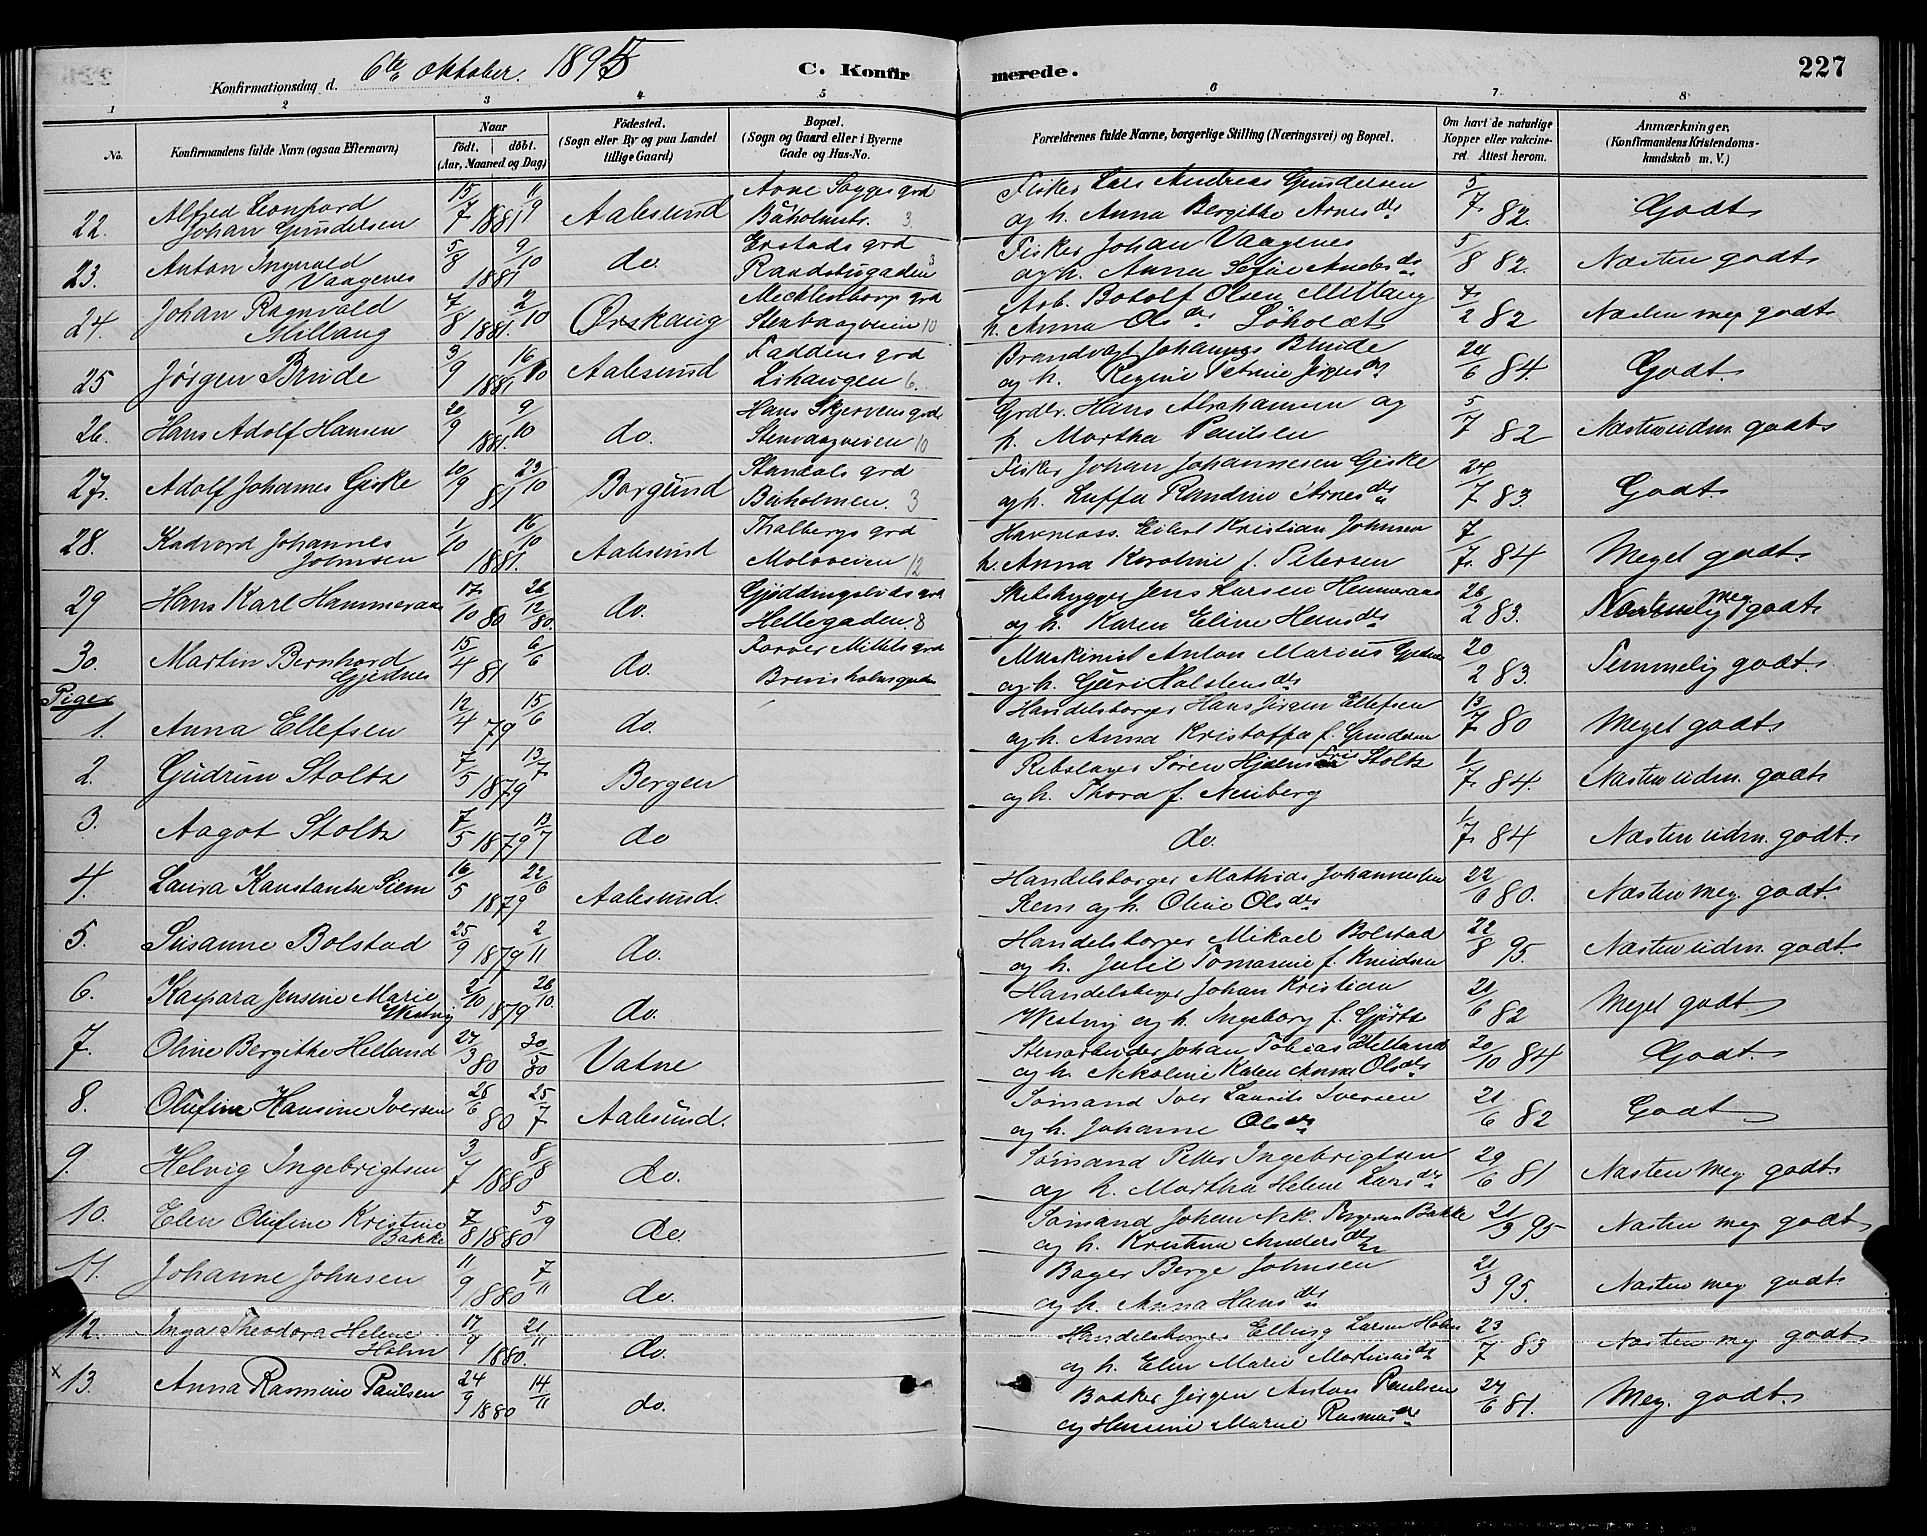 227
Konfirmationsdag d. 6te oktober. 1895
C. Konfirmerede.
1 2 3 4 5 6 7 8
No.
Konfirmandens fulde Navn (ogsaa Efternavn)
Naar
født. døbt.
(Aar, Maaned og Dag)
Fødested.
(Sogn eller By og paa Landet
tillige Gaard)
Bopæl.
(Sogn og Gaard eller i Byerne
Gade og Hus-No.
Forældrenes fulde Navne, borgerlige Stilling (Næringsvei) og Bopæl.
Om havt de naturlige
Kopper eller vakcine-
ret. Attest herom.
Anmærkninger.
(Konfirmandens Kristendoms-
kundskab m. V.)
22. Alfred Leonhard Johan Gundersen 15/7 1881 11/9 Aalesund Arne Sagges grd Buholmstr. 3 Fisker Lars Andreas Gundersen og h. Anna Bergithe Arnesdr 5/7 82. Godt
23. Anton Ingvald Vaagenes 5/8 1881 9/10 do. Erstads grd Raadstugaden 3 Fisker Johan Vaagenes og h. Anna Sofie Andersdr 5/8 82. Næsten godt
24. Johan Ragnvald Millang 7/8 1881. 2/10 Ørskaug Mecklenborgs grd Stenvaagveien 10 Arb. Botolf Olsen Millang h. Anna Olsdr Søholdt 7/2 82 Næsten meg godt
25 Jørgen Brude 3/9 1881 16/10 Aalesund Faddens grd Lihaugen 6. Brandvagt Johannes Brude og h. Regine Petrine Jørgensdr 24/6 84. Godt.
26. Hans Adolf Hansen 20/9 1881. 9/10 do. Hans Skjervens grd Stenvaagveien 10 Grdbr. Hans Abrahamsen og h. Martha Paulsen 5/7 82 Næsten udm. godt
27. Adolf Johannes Giske 10/9 81 23/10 Borgund Standals grd Buholmen. 3 Fisker Johan Johannesen Giske og h. Luffa Randine Arnesdr 24/7 83. Godt.
28. Kadvard Johannes Johnsen 1/10 1881. 16/10 Aalesund Thalbergs grd Moloveien 12 Havneass. Eilert Kristian Johnsen h. Anna Karoline f. Petersen 7/7 84 Meget godt.
29 Hans Karl Hammeraas 17/10 80 26/12 80. do. Gjøddingslids grd Hellegaden. 8 Skibsbygger Jens Larsen Hammeraas og h. Karen Eline Hansdr 26/2 83. meg godt
30. Martin Bernhard Gjednes 15/4 81 6/6 do. Farver Mittets grd Brunholmgaden Maskinist Anton Marius Gjednes og h. Guri Halstensdr 20/2 83. Temmelig godt
Piger
1. Anna Ellefsen 12/4 79 15/6 do. Handelsborger Hans Jørgen Ellefsen og h. Anna Kristoffa f. Gundersen 13/7 80 Meget godt
2. Gudrun Stoltz 7/5 1879 13/7 Bergen Rebslager Søren Friis Stoltz og h. Thora f. Neuberg 1/7 84. Næsten udm. godt
3. Aagot Stoltz 7/5 1879 13/7 do do. 1/7 84 Næsten udm. godt.
4. Laura Konstantse Siem 16/5 1879 22/6 Aalesund. Handelsborger Mathias Johannessen Siem og h. Oline Olsdr 22/6 80. Næsten meg. godt.
5. Susanne Bolstad 25/9 1879 2/11 do. Handelsborger Mikael Bolstad og h. Julie Tomasine f. Knudsen 22/8 95. Næsten udm. godt.
6. Kaspara Jensine Marie Westvig 2/10 1879 26/10 do. Handelsborger Johan Kristian Westvig og h. Ingeborg f. Gjørtz 21/6 82 Meget godt
7. Oline Bergithe Helland 27/3 80 30/5 80 Vatne Stenarbeider Johan Tobias Helland og h. Nikoline Karen Anna Olsdr 20/10 84 Godt.
8. Olufine Hansine Iversen 25/6 80 25/7 Aalesund. Sømand Iver Laurits Iversen og h. Johanne Olsdr 21/6 82 Godt
9. Helvig Ingebrigtsen 3/7 1880 8/8 do. Sømand Petter Ingebrigtsen og h. Martha Helene Larsdr 29/6 81 Næsten meg. godt.
10. Elen Olufine Kristine Bakke 7/8 1880 5/9 do. Sømand Johan Nik. Bakke og h. Kristine Andersdr 21/3 95 Næsten meg. godt
11. Johanne Johnsen 11/9 1880 7/11 do. Bager Berge Johnsen og h. Anna Hansdr 21/3 95. Næsten meg. godt.
12. Inga Theodora Helene Holm 17/9 1880. 21/11 do. Handelsborger Elling Larsen Holm og h. Elen Marie Martinusdr 23/7 83 Næsten meg godt.
x 13. Anna Rasmine Paulsen 24/9 1880 14/11 do. Bødker Jørgen Anton Paulsen og Hansine Marie Rasmusdr 27/6 81. Meg. godt.